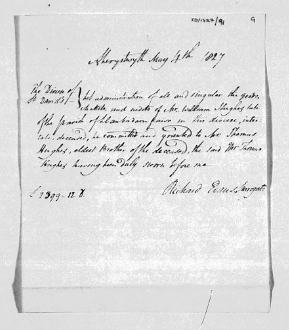 SD/1827/91 G
Aberystwyth May 4th 1827
The Diocese of
St Davids
That administration of all and singular the goods,
chattels and credits of Mr. William Hughes late
of the parish of Llanbadarn fawr in this diocese, inter
tate deceased, is committed and granted to Mr Thomas
Hughes, eldest Brother of the deceased, the said Mr Thomas
Hughes having been duly sworn before me
Richard Evans Surrogate
£ 2399-12.8.